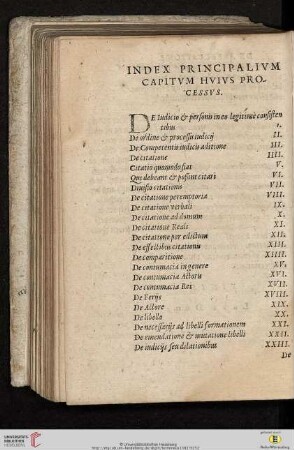 INDEX PRINCIPALIVM
CAPITVM HVIVS PRO-
CESSVS.
DE Iudicio & personis in eo legitimè consisten
tibus I.
De ordine & processu iudicij II.
De Competentia iudicis aditione III.
De citatione IIII.
Citatio quomodo fiat V.
Qui debeant & possint citari VI.
Diuisio citationis VII.
De citatione peremptoria VIII.
De citatione verbali IX.
De citatione ad domum X.
De citatione Reali XI.
De citatione per edictum XII.
De effectibus citationis XIII.
De comparitione XIIII.
De contumacia in genere XV.
De contumacia Actoris XVI.
De contumacia Rei XVII.
De Ferijs XVIII.
De Actore XIX.
De libello XX.
De necessarijs ad libelli formationem XXI.
De emendatione & mutatione libelli XXII.
De inducijs seu dilationibus XXIII.
De
UNIVERSITÄTS-
BIBLIOTHEK
HEIDELBERG
© Universitätsbibliothek Heidelberg